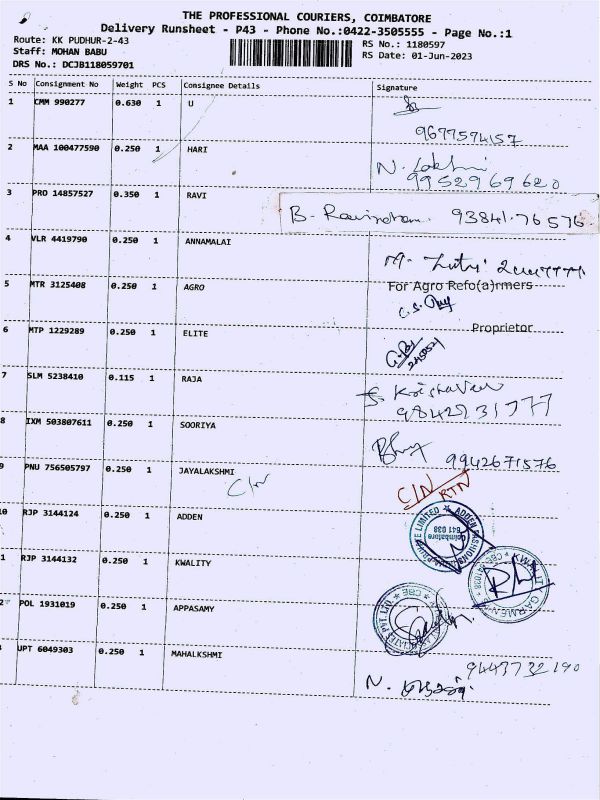 THE PROFESSIONAL COURIERS, COIMBATORE
Delivery Runsheet - P43 - Phone No.:0422-3505555 - Page No.:1
Route: KK PUDHUR-2-43 RS No.: 1180597
Staff: MOHAN BABU RS Date: 01-Jun-2023
DRS No.: DCJB118059701
S No Consignment No Weight PCS Consignee Details Signature
1 CMM 990277 0.630 1 U
9677574157
2 MAA 100477590 0.250 1 HARI
N. Lakshmi
9952969620
3 PRO 14857527 0.350 1 RAVI
B- Ravindran. 93841.76576
4 VLR 4419790 0.250 1 ANNAMALAI
5 MTR 3125408 0.250 1 AGRO
For Agro Refo(a)rmers
Proprietor
6 MTP 1229289 0.250 1 ELITE
7 SLM 5238410 0.115 1 RAJA
8 IXM 503807611 0.250 1 SOORIYA
9942671576
9 PNU 756505797 0.250 1 JAYALAKSHMI
C/N
C/N RTN
10 RJP 3144124 0.250 1 ADDEN
PRIVATE LIMITED ★ ADDEN FASHIONS
Coimbatore
641 038
1 RJP 3144132 0.250 1 KWALITY
KWALITY GARMENTS
CBE-641038
2 POL 1931019 0.250 1 APPASAMY
ASSOCIATES PVT. LTD ★ CBE ★
UPT 6049303 0.250 1 MAHALKSHMI
9443732190